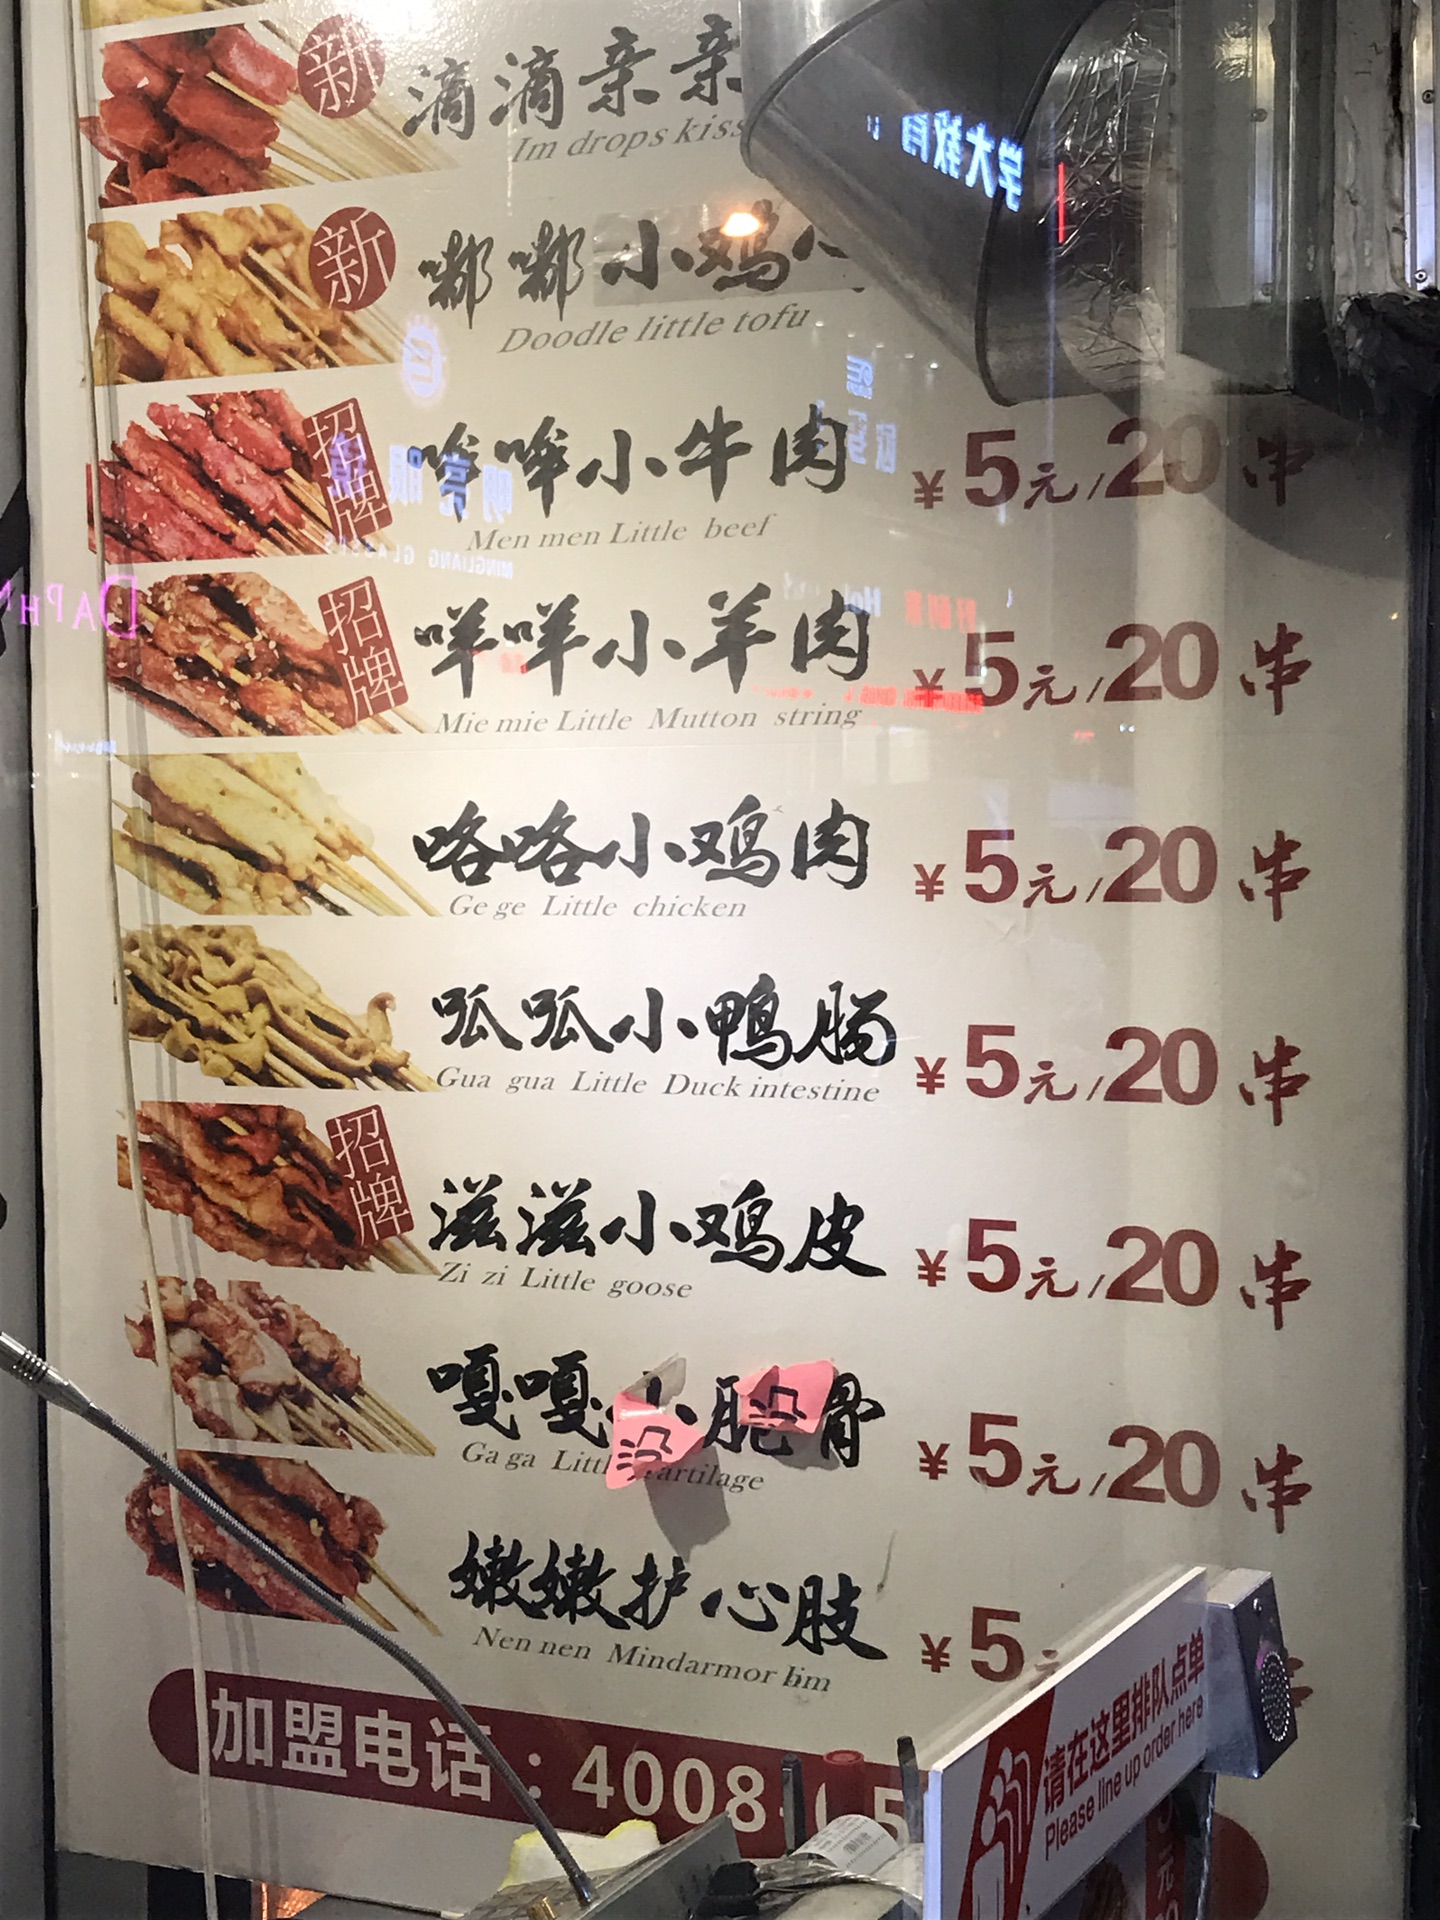 新
滴滴亲亲
Im drops kiss
新
嘟嘟小鸡
Doodle little tofu
招牌
哞哞小牛肉
¥5元/20串
Men men Little beef
招牌
咩咩小羊肉
¥5元/20串
Mie mie Little Mutton string
咯咯小鸡肉
¥5元/20串
Ge ge Little chicken
呱呱小鸭肠
¥5元/20串
Gua gua Little Duck intestine
招牌
滋滋小鸡皮
¥5元/20串
Zi zi Little goose
嘎嘎小脆骨
¥5元/20串
Ga ga Little Cartilage
嫩嫩护心肢
¥5
Nen nen Mindarmor lim
加盟电话：4008
请在这里排队点单
Please line up order here
学大教育
明亮眼
MINGLIANG GLASSES
DAPHN